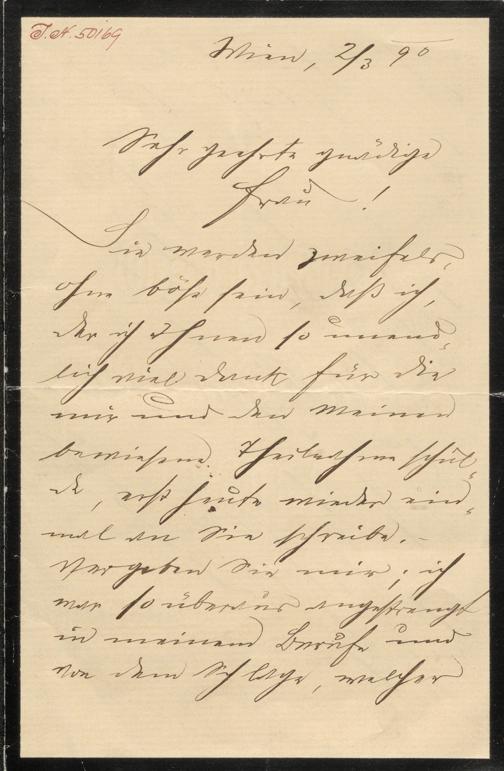 I.N. 50169
Wien, 2/3 90
Sehr geehrte gnädige
Frau!
Sie werden zweifels-
ohne böse sein, daß ich,
der ich Ihnen so unend-
lich viel Dank für die
mir und den Meinen
bewiesene Theilnahme schul-
de, erst heute wieder ein-
mal an Sie schreibe. –
Vergeben Sie mir; ich
war so überaus angestrengt
in meinem Berufe und
von dem Schlage, welcher